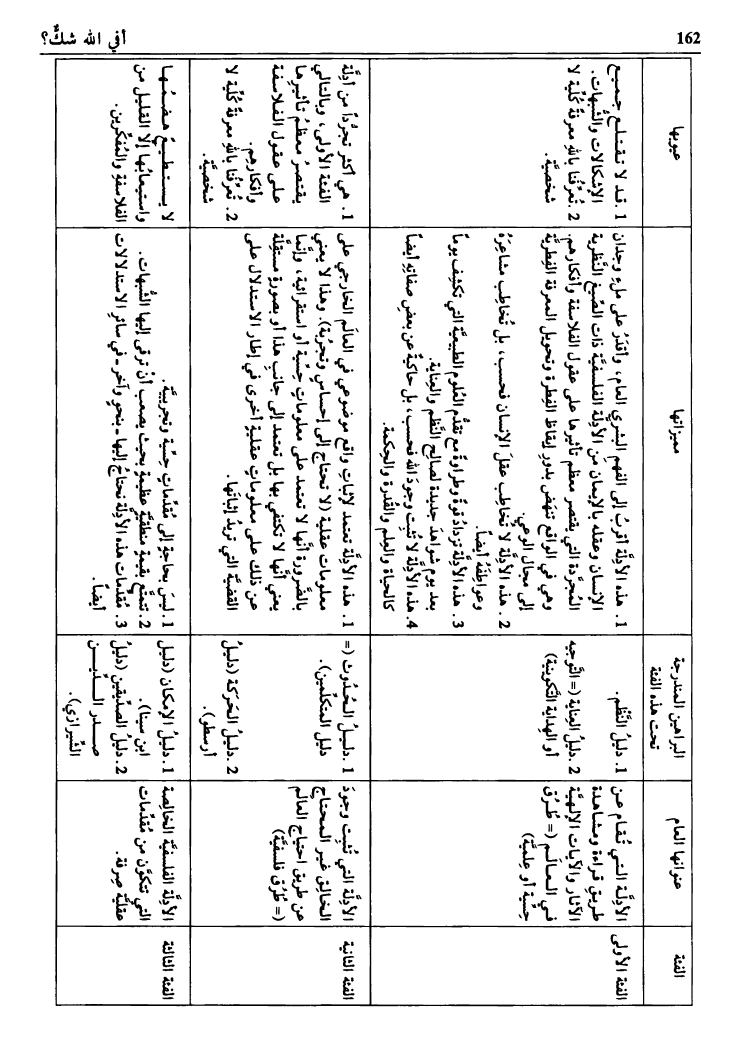 162
أفي الله شكٌّ؟
الفئة
عنوانها العام
البراهين المندرجة
تحت هذه الفئة
مميزاتها
عيوبها
الفئة الأولى
الأدِلَّة التي تُقام عن
طريقِ قراءة ومشاهدة
الآثار والآيات الإلهيَّة
في العالَم (= طُرُق
حِسِّية أو عِلمِيَّة)
1. دليلُ النَّظْم.
2. دليلُ العناية (= التَّوجيه
أو الهداية التَّكوينية)
1. هذه الأدِلَّة أقربُ إلى الفهمِ البشري العام، وأقدَرُ على ملءِ وجدان
الإنسان وعقله بالإيمان مِن الأدِلَّة الفلسفيَّة ذات الصِّيغ النَّظرية
المُجرَّدة التي يقتصر معظم تأثيرها على عقول الفلاسفة وأفكارهم.
وهي في الواقع تنهَض بدورِ إيقاظ الفِطرة وتحويل المعرفة الفِطريَّة
إلى مجال الوعي.
2. هذه الأدِلَّة لا تُخاطِب عقلَ الإنسان فحسب، بل تُخاطِب مشاعِرَهُ
وعواطِفَهُ أيضاً.
3. هذه الأدِلَّة تزدادُ قوةً وطراوةً مع تقدُّم العُلوم الطبيعيَّة التي تكشِف يوماً
بعد يومٍ شواهدَ جديدة لصالحِ النَّظم والعِناية.
4. هذه الأدِلة لا تُثبِت وجودَ الله فحسب، بل حاكيةٌ عن بعضِ صفاتهِ أيضاً
كالحياة والعِلم والقُدرة والحِكمة.
1. قد لا نقتلع جميع
الإشكالات والشُّبهات.
2. تُعرِّفُنا باللهِ معرفةً كُلِّية لا
شخصيَّة.
الفئة الثانية
الأدِلَّة التي تُثبِت وجودَ
الخالِق غير المحتاج
عن طريق احتياج العالَم
(= طُرُق فلسفيَّة)
1. دليلُ الحُدوث (=
دليل المتكلِّمين).
2. دليلُ الحَرَكة (دليلُ
أرسطو).
1. هذه الأدِلَّة تعتمد لإثباتِ واقعٍ موضوعي في العالَم الخارجي على
معلومات عقلية (لا تحتاج إلى إحساسٍ وتجرُبة). وهذا لا يعنَي
بالضَّرورة أنَّها لا تعتمد على معلوماتٍ حِسِّية أو استقرائية، وإنَّما
يعني أنَّها لا تكتفي بها بل تعتمد إلى جانبِ هذا أو بصورةٍ مستقِلَّة
عن ذلك على معلوماتٍ عقليةٍ أخرى في إطار الاستدلال على
القضيَّة التي تريدُ إثباتَها.
1. هي أكثر تجرُّداً من أدِلَّة
الفئة الأولى، وبالتالي
يقتصرُ معظمُ تأثيرِها
على عقولِ الفلاسفة
وأفكارهم.
2. تُعرِّفُنا باللهِ معرفةً كُلِّية لا
شخصيَّة.
الفئة الثالثة
الأدِلَّة الفلسفيَّة الخالِصة
التي تتكوَّن من مُقدِّمات
عقليَّة صِرفة.
1. دليلُ الإمكان (دليل
ابن سينا).
2. دليلُ الصدِّيقين (دليلُ
صدر الدين
الشِّيرازي).
1. ليسَ بحاجةٍ إلى مُقدِّماتٍ حِسِّية وتجريبيَّة.
2. تتمتَّع بقيمةٍ منطقيَّةٍ عظيمةٍ بحيث يصعب أنْ ترقى إليها الشُّبهات.
3. مُقدِّمات هذه الأدِلة نحتاجُ إليها - بنحوٍ وآخر - في سائرِ الاستدلالات
أيضاً.
لا يستطيعُ هضمَها
واستيعابَها إلَّا القليل من
الفلاسفةِ والمُفكِّرين.